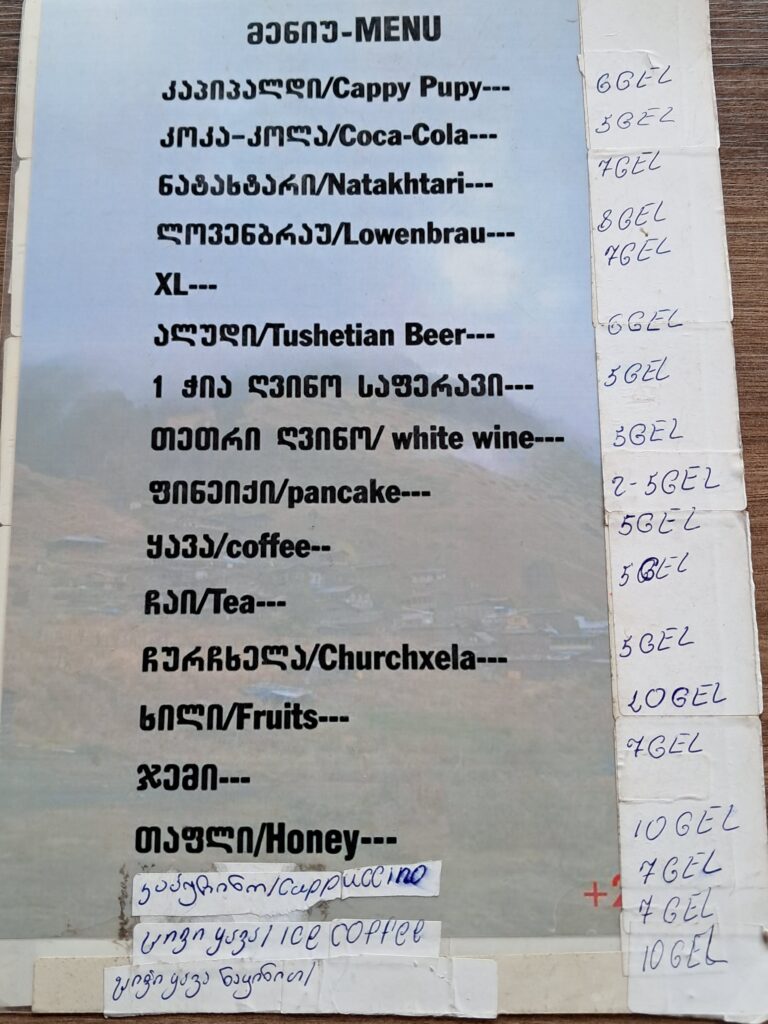 მენიუ-MENU
კაპიპალდი/Cappy Pupy--- 6GEL
კოკა-კოლა/Coca-Cola--- 5GEL
ნატახტარი/Natakhtari--- 7GEL
ლოვენბრაუ/Lowenbrau--- 8GEL
XL--- 7GEL
ალუდი/Tushetian Beer--- 6GEL
1 ჭია ღვინო საფერავი--- 5GEL
თეთრი ღვინო/ white wine--- 5GEL
ფინეიქი/pancake--- 2-5GEL
ყავა/coffee-- 5GEL
ჩაი/Tea--- 5GEL
ჩურჩხელა/Churchxela--- 5GEL
ხილი/Fruits--- 20GEL
ჯემი--- 7GEL
თაფლი/Honey--- 10GEL
კაპუჩინო/Cappuccino 7GEL
ცივი ყავა/ ICE COFFEE 7GEL
ცივი ყავა ნაყინით/ 10GEL